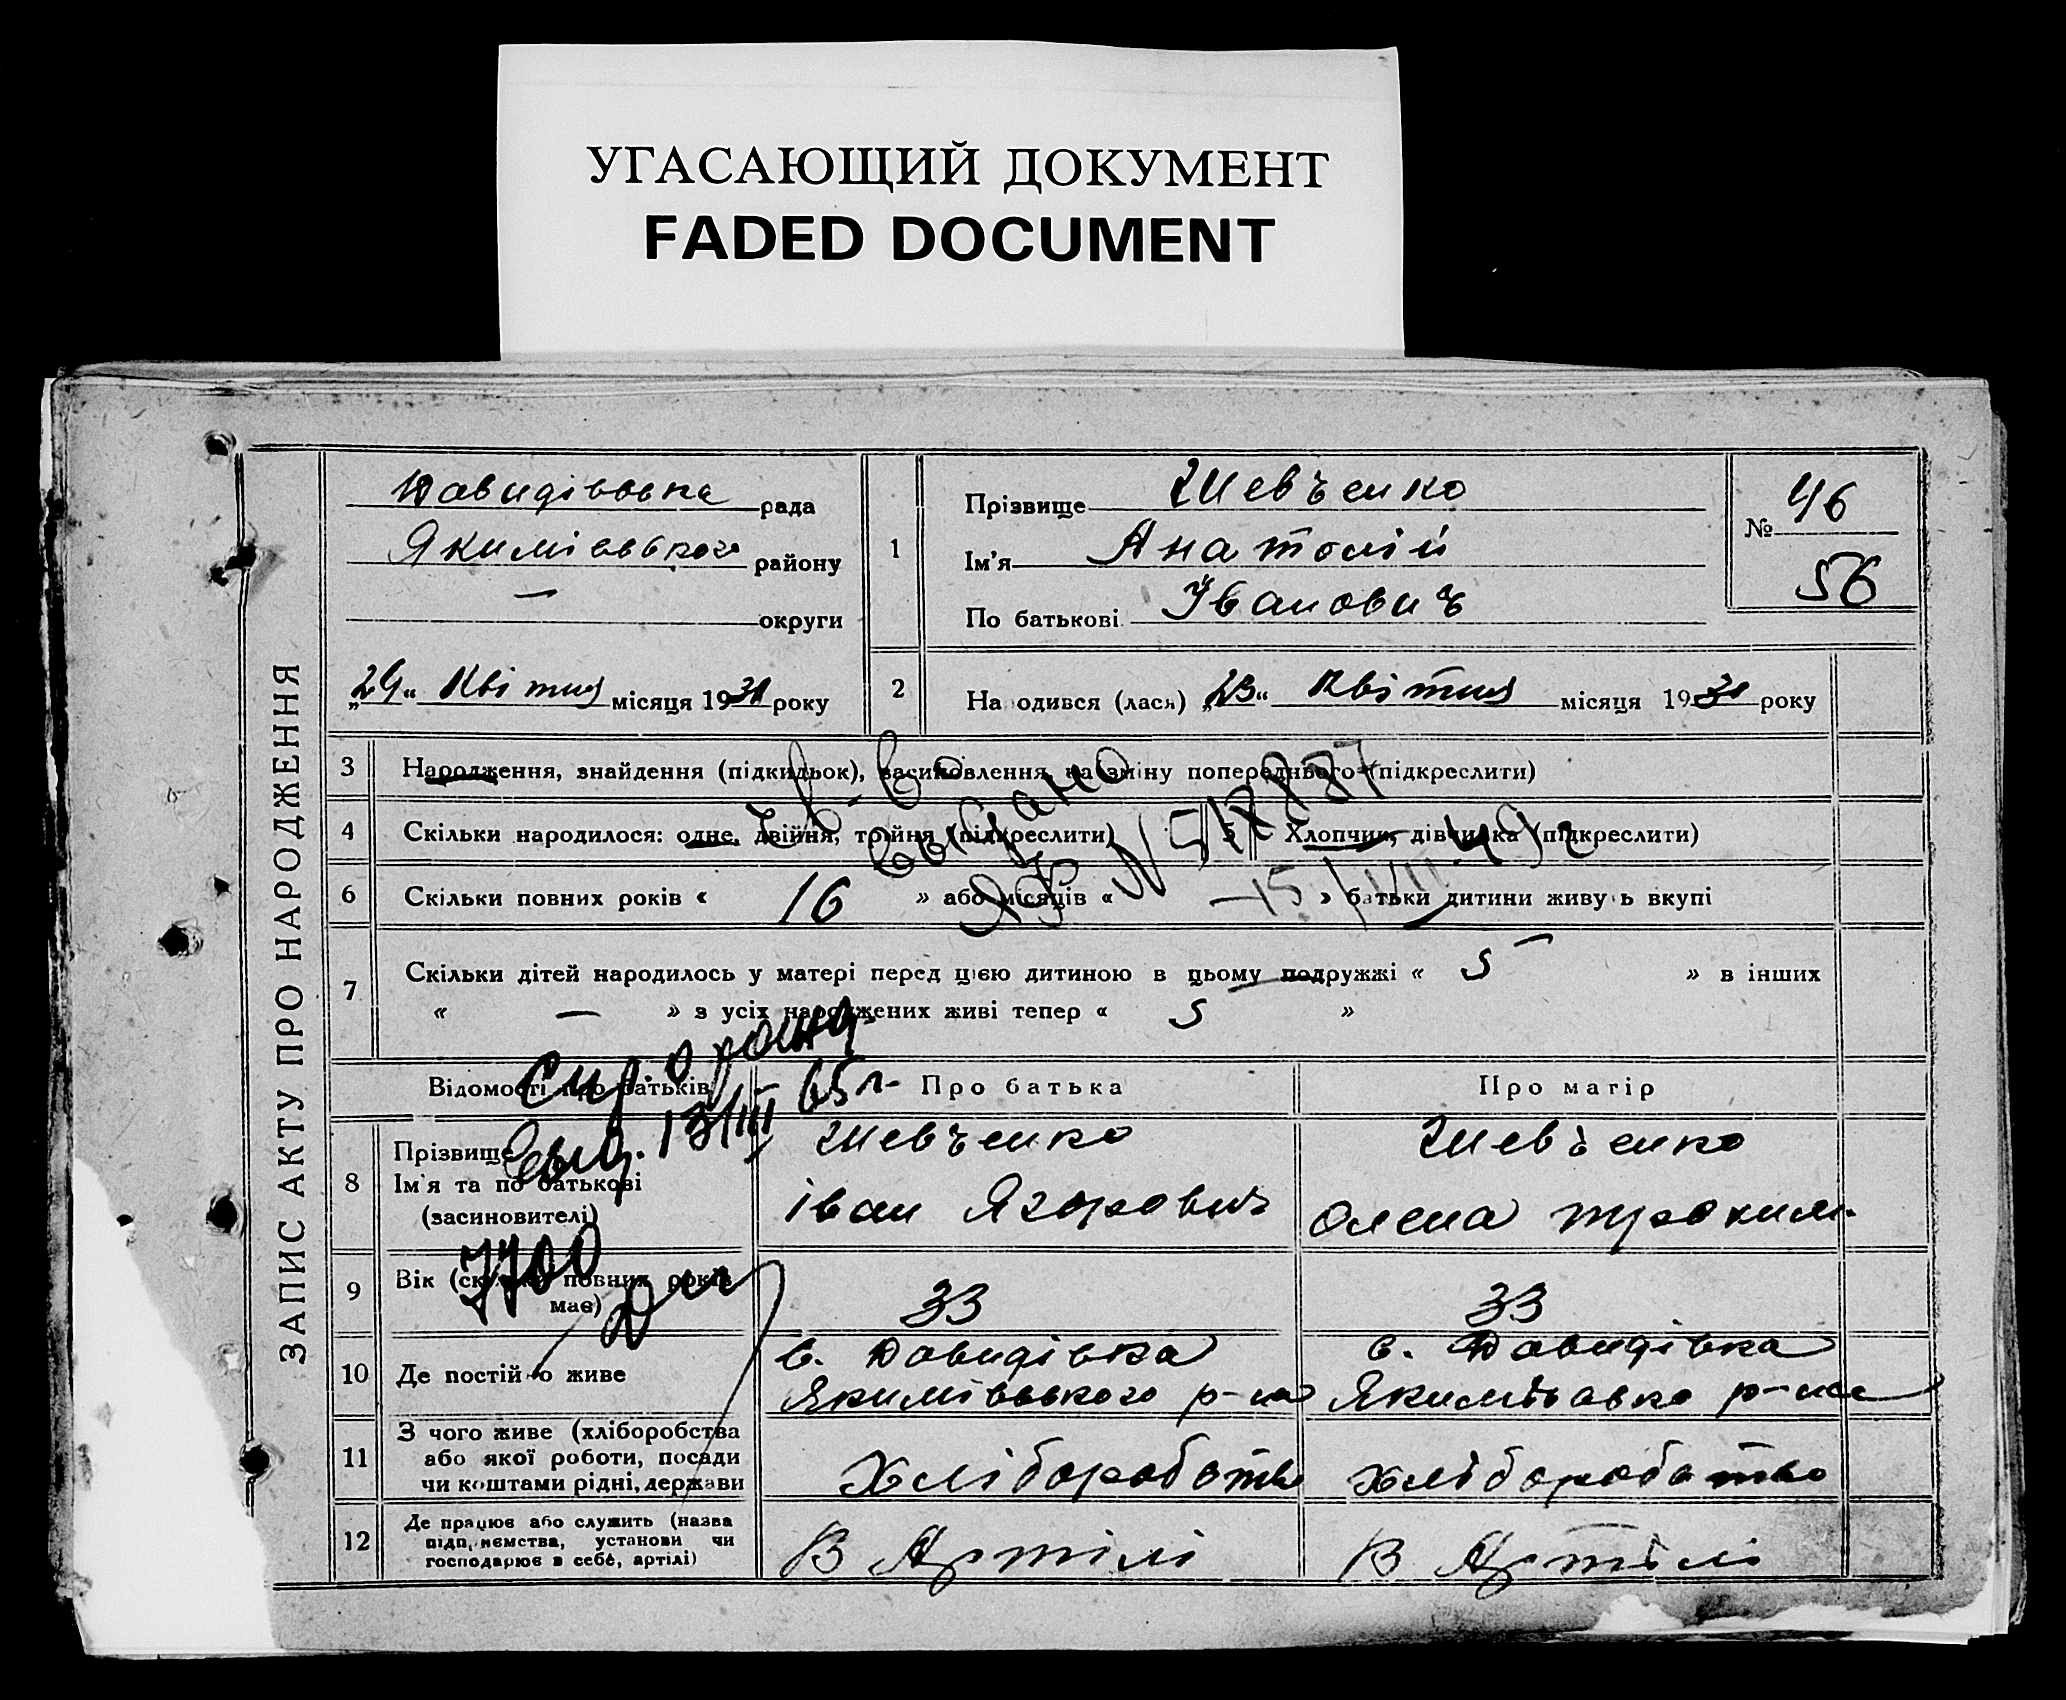 УГАСАЮЩИЙ ДОКУМЕНТ
FADED DOCUMENT
ЗАПИС АКТУ ПРО НАРОДЖЕННЯ
Давидівська рада
Якимівського району
— округи
„29“ Квітня місяця 1931 року
1
Прізвище Шевченко
Ім'я Анатолій
По батькові Іванович
№ 46
56
2
Народився (лася) „23“ Квітня місяця 1931 року
3
Народження, знайдення (підкидьок), засиновлення, на зміну попереднього (підкреслити)
4
Скільки народилося: одне, двійня, трійня (підкреслити)
5
Хлопчик, дівчинка (підкреслити)
6
Скільки повних років « 16 » або місяців « — » батьки дитини живуть вкупі
7
Скільки дітей народилось у матері перед цією дитиною в цьому подружжі « 5 » в інших
« — » з усіх народжених живі тепер « 5 »
Св-во
выдано
15/VII 49г
Відомості про батьків
Про батька
Про матір
Спр. о рожд.
выд. 13/III 65 г.
8
Прізвище
Ім'я та по батькові
(засиновителі)
Шевченко
іван Ягорович
Шевченко
Олена трохим.
9
Вік (скільки повних років
має)
33
33
10
Де постійно живе
с. Давидівка
Якимівського р-на
с. Давидівка
Якимівсько р-на
11
З чого живе (хліборобства
або якої роботи, посади
чи коштами рідні, держави
Хліборобство
хліборобство
12
Де працює або служить (назва
підприємства, установи чи
господарює в себе, артілі)
В Артілі
В Артілі